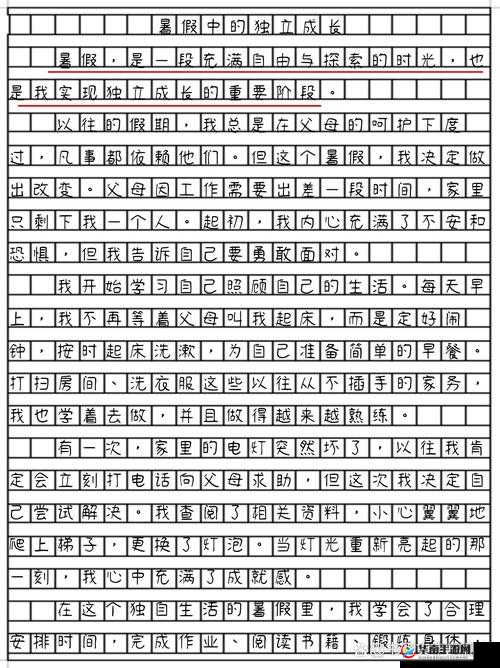 暑假中的独立成长
暑假，是一段充满自由与探索的时光，也
是我实现独立成长的重要阶段。
以往的假期，我总是在父母的呵护下度
过，凡事都依赖他们。但这个暑假，我决定做
出改变。父母因工作需要出差一段时间，家里
只剩下我一个人。起初，我内心充满了不安和
恐惧，但我告诉自己要勇敢面对。
我开始学习自己照顾自己的生活。每天早
上，我不再等着父母叫我起床，而是定好闹
钟，按时起床洗漱，为自己准备简单的早餐。
打扫房间、洗衣服这些以往从不插手的家务，
我也学着去做，并且做得越来越熟练。
有一次，家里的电灯突然坏了，以往我肯
定会立刻打电话向父母求助，但这次我决定自
己尝试解决。我查阅了相关资料，小心翼翼地
爬上梯子，更换了灯泡。当灯光重新亮起的那
一刻，我心中充满了成就感。
在这个独自生活的暑假里，我学会了合理
安排时间，完成作业、阅读书籍、锻炼身体
华南手游网